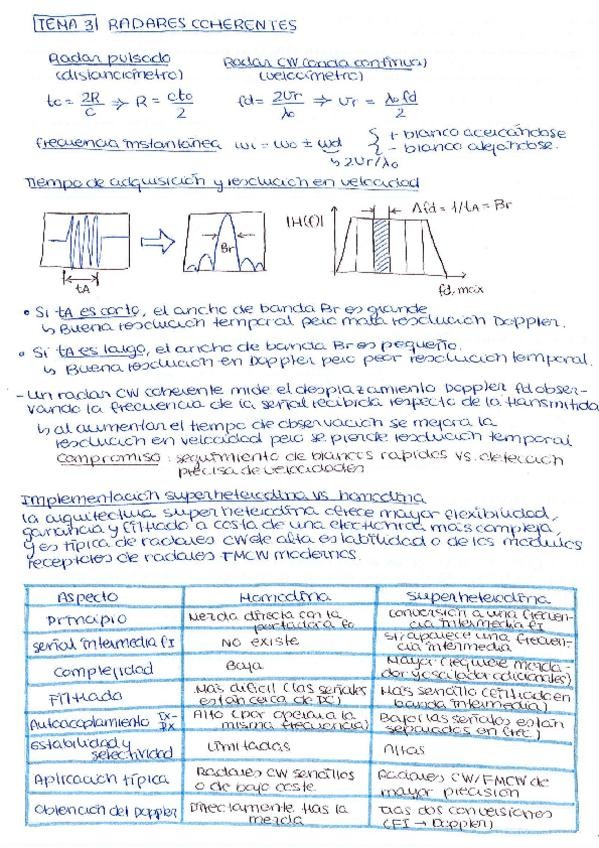 TEMA 3 RADARES COHERENTES
Radar pulsado Radar CW (onda continua)
(distanciómetro) (velocímetro)
tc = 2R/c ⇒ R = cto/2 fd = 2Vr/λo ⇒ Vr = λo fd/2
Frecuencia instantánea wi = wo ± wd { + blanco acercándose
- blanco alejándose.
↳ 2Vr/λo
Tiempo de adquisición y resolución en velocidad
Br
|H(f)|
Δfd = 1/tA = Br
tA
fd, max
• Si tA es corto, el ancho de banda Br es grande
↳ Buena resolución temporal pero mala resolución Doppler.
• Si tA es largo, el ancho de banda Br es pequeño.
↳ Buena resolución en Doppler pero peor resolución temporal.
- Un radar CW coherente mide el desplazamiento Doppler fd obser-
vando la frecuencia de la señal recibida respecto de la transmitida
↳ al aumentar el tiempo de observación se mejora la
resolución en velocidad pero se pierde resolución temporal
compromiso: seguimiento de blancos rápidos vs. detección
precisa de velocidades
Implementación superheterodina vs homodina
La arquitectura superheterodina ofrece mayor flexibilidad,
ganancia y filtrado a costa de una electrónica más compleja,
y es típica de radares CW de alta estabilidad o de los módulos
receptores de radares FMCW modernos.
Aspecto Homodina Superheterodina
Principio Mezcla directa con la portadora fo Conversión a una frecuencia intermedia fI
señal intermedia fI No existe Sí aparece una frecuencia intermedia
Complejidad Baja Mayor (requiere mezclador y oscilador adicionales)
Filtrado Más difícil (las señales están cerca de DC) Más sencillo (filtrado en banda intermedia)
Autoacoplamiento TX-RX Alto (por operar a la misma frecuencia) Bajo (las señales están separadas en frec.)
Estabilidad y selectividad Limitadas Altas
Aplicación típica Radares CW sencillos o de bajo coste. Radares CW/FMCW de mayor precisión
Obtención del Doppler Directamente tras la mezcla Tras dos conversiones (FI → Doppler)